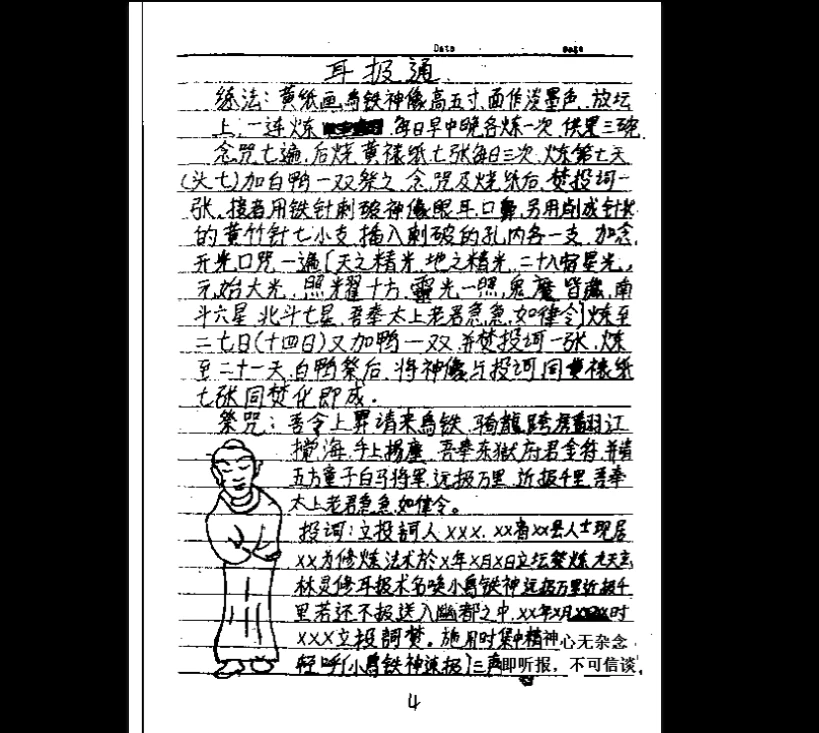 Date Page
耳报通
练法：黄纸画乌铁神像高五寸，面作淡墨色，放坛
上，一连炼 每日早中晚各炼一次，供果三碗，
念咒七遍，后烧黄裱纸七张每日三次，炼第七天
(头七)加白鸭一双祭之，念咒及烧纸后，焚投词一
张，接者用铁针刺破神像眼耳口鼻，另用削成针状
的黄竹针七小支，插入刺破的孔内各一支，加念
开光口咒一遍[天之精光，地之精光，二十八宿星光，
元始大光，照耀十方，靈光一照，鬼魔皆藏，南
斗六星，北斗七星，吾奉太上老君急急，如律令]炼至
二七日(十四日)又加鸭一双，并焚投词一张，炼
至二十一天，白鸭祭后，将神像与投词同黄裱纸
七张同焚化即成。
祭咒：吾令上界请来乌铁，骑龍跨 翻江
搅海，手上揚塵，吾奉东獄府君金符，并请
五方童子白马将军，远报万里，近报千里，吾奉
太上老君急急，如律令。
投词：立投詞人×××，××省××县人士现居
××为修炼法术於×年×月×日立坛祭炼，九天玄
林灵修耳报术名唤小乌铁神远报万里近报千
里若还不报送入幽都之中，××年×月 时
×××立投詞焚。施用时集中精神心无杂念，
轻呼[小乌铁神速报]三声即听报，不可信谈，
4